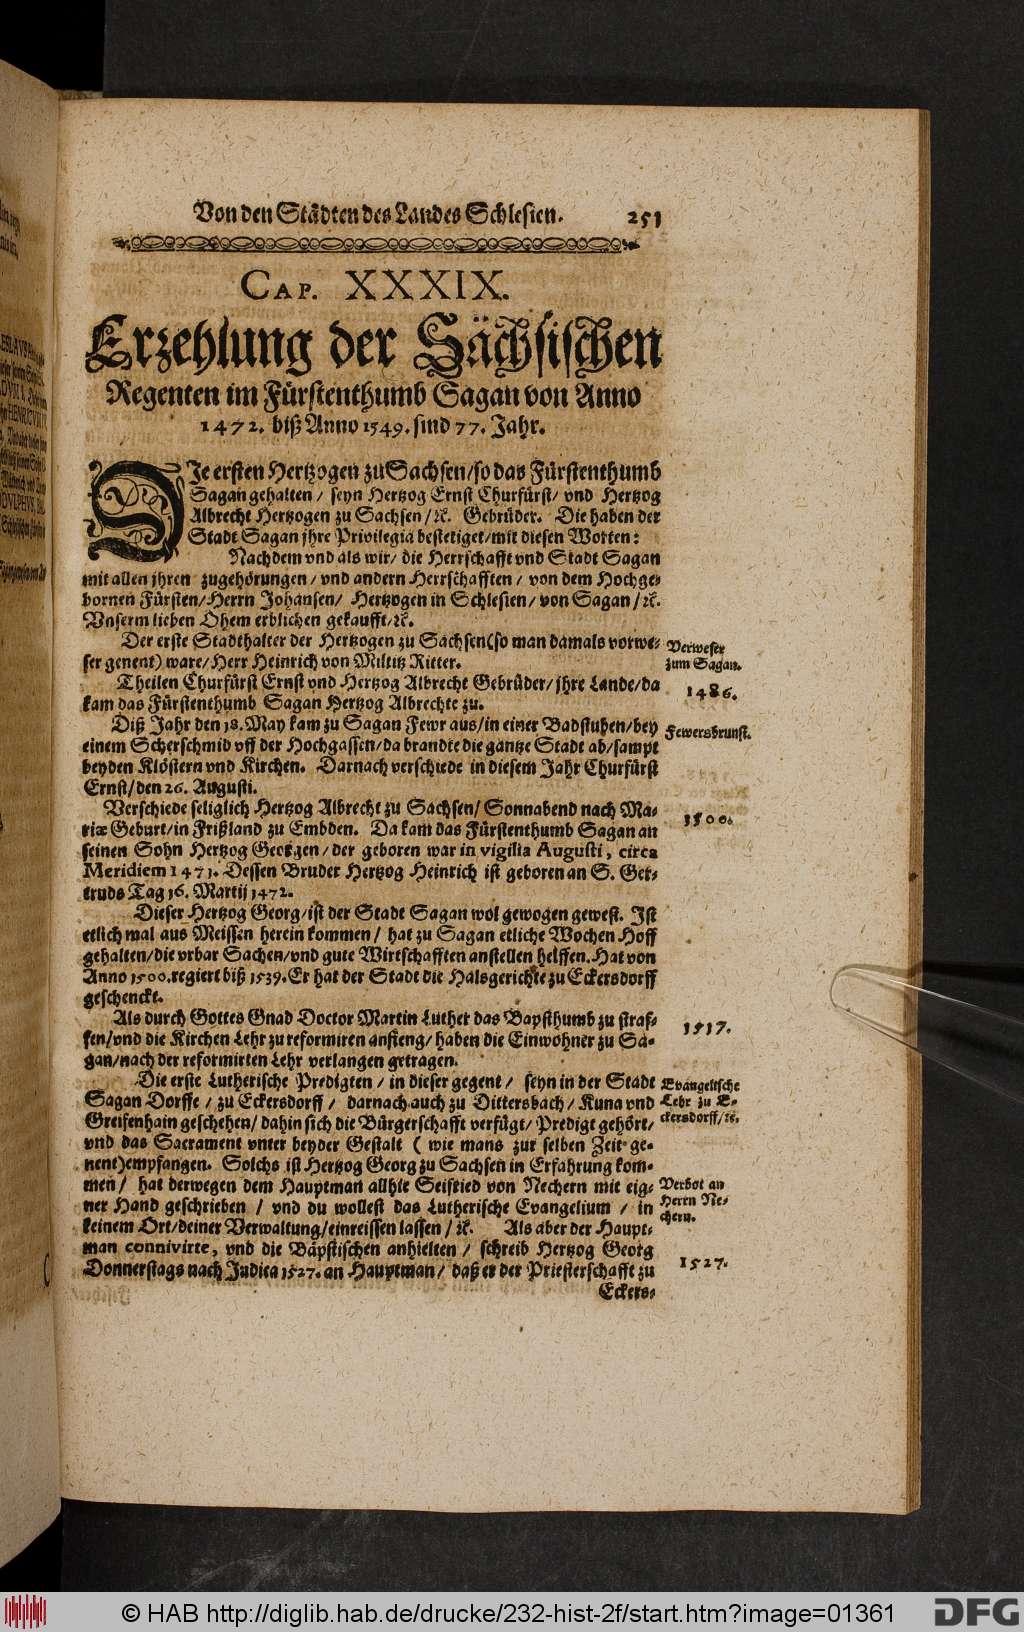 Von den Städten des Landes Schlesien. 251
CAP. XXXIX.
Erzehlung der Sächsischen
Regenten im Fürstenthumb Sagan von Anno
1472. biß Anno 1549. sind 77. Jahr.
DJe ersten Hertzogen zu Sachsen/ so das Fürstenthumb
Sagan gehalten / seyn Hertzog Ernst Churfürst/ vnd Hertzog
Albrecht Hertzogen zu Sachsen / ꝛc. Gebrüder. Die haben der
Stadt Sagan jhre Privilegia bestetiget/ mit diesen Worten:
Nachdem vnd als wir/ die Herrschafft vnd Stadt Sagan
mit allen jhren zugehörungen / vnd andern Herrschafften / von dem Hochge-
bornen Fürsten/ Herrn Johansen/ Hertzogen in Schlesien/ von Sagan / ꝛc.
Vnserm lieben Ohem erblichen gekaufft/ ꝛc.
Der erste Stadthalter der Hertzogen zu Sachsen (so man damals vorwe-
ser genent) ware/ Herr Heinrich von Miltitz Ritter.
Verweser
zum Sagan.
Theilen Churfürst Ernst vnd Hertzog Albrecht Gebrüder/ jhre Lande/ da
kam das Fürstenthumb Sagan Hertzog Albrechte zu.
1486.
Diß Jahr den 18. May kam zu Sagan Fewr aus/ in einer Badstuben/ bey
einem Scherschmid vff der Hochgassen/ da brandte die gantze Stadt ab/ sampt
beyden Klöstern vnd Kirchen. Darnach verschiede in diesem Jahr Churfürst
Ernst/ den 26. Augusti.
Fewersbrunst.
Verschiede seliglich Hertzog Albrecht zu Sachsen/ Sonnabend nach Ma-
riæ Geburt/ in Frißland zu Embden. Da kam das Fürstenthumb Sagan an
seinen Sohn Hertzog Georgen/ der geboren war in vigilia Augusti, circa
Meridiem 1471. Dessen Bruder Hertzog Heinrich ist geboren an S. Ger-
truds Tag 16. Martij 1472.
1500.
Dieser Hertzog Georg/ ist der Stadt Sagan wol gewogen gewest. Ist
etlich mal aus Meissen herein kommen / hat zu Sagan etliche Wochen Hoff
gehalten/ die vrbar Sachen/ vnd gute Wirtschafften anstellen helffen. Hat von
Anno 1500. regiert biß 1539. Er hat der Stadt die Halsgerichte zu Eckersdorff
geschenckt.
Als durch Gottes Gnad Doctor Martin Luther das Bapsthumb zu straf-
fen/ vnd die Kirchen Lehr zu reformiren anfieng/ haben die Einwohner zu Sa-
gan/ nach der reformirten Lehr verlangen getragen.
1517.
Die erste Lutherische Predigten / in dieser gegent / seyn in der Stadt
Sagan Dorffe / zu Eckersdorff / darnach auch zu Dittersbach / Kuna vnd
Greisenhain geschehen/ dahin sich die Bürgerschafft verfügt/ Predigt gehört/
vnd das Sacrament vnter beyder Gestalt ( wie mans zur selben Zeit ge-
nent) empfangen. Solchs ist Hertzog Georg zu Sachsen in Erfahrung kom-
men / hat derwegen dem Hauptman allhie Seifried von Nechern mit eig-
ner Hand geschrieben / vnd du wollest das Lutherische Evangelium / in
keinem Ort/ deiner Verwaltung/ einreissen lassen / ꝛc. Als aber der Haupt-
man connivirte, vnd die Bäpstischen anhielten / schreib Hertzog Georg
Donnerstags nach Judica 1527. an Hauptman/ daß er der Priesterschafft zu
Evangelische
Lehr zu E-
ckersdorff/ ꝛc.
Verbot an
Herrn Ne-
chern.
1527.
Eckers-
© HAB http://diglib.hab.de/drucke/232-hist-2f/start.htm?image=01361
DFG